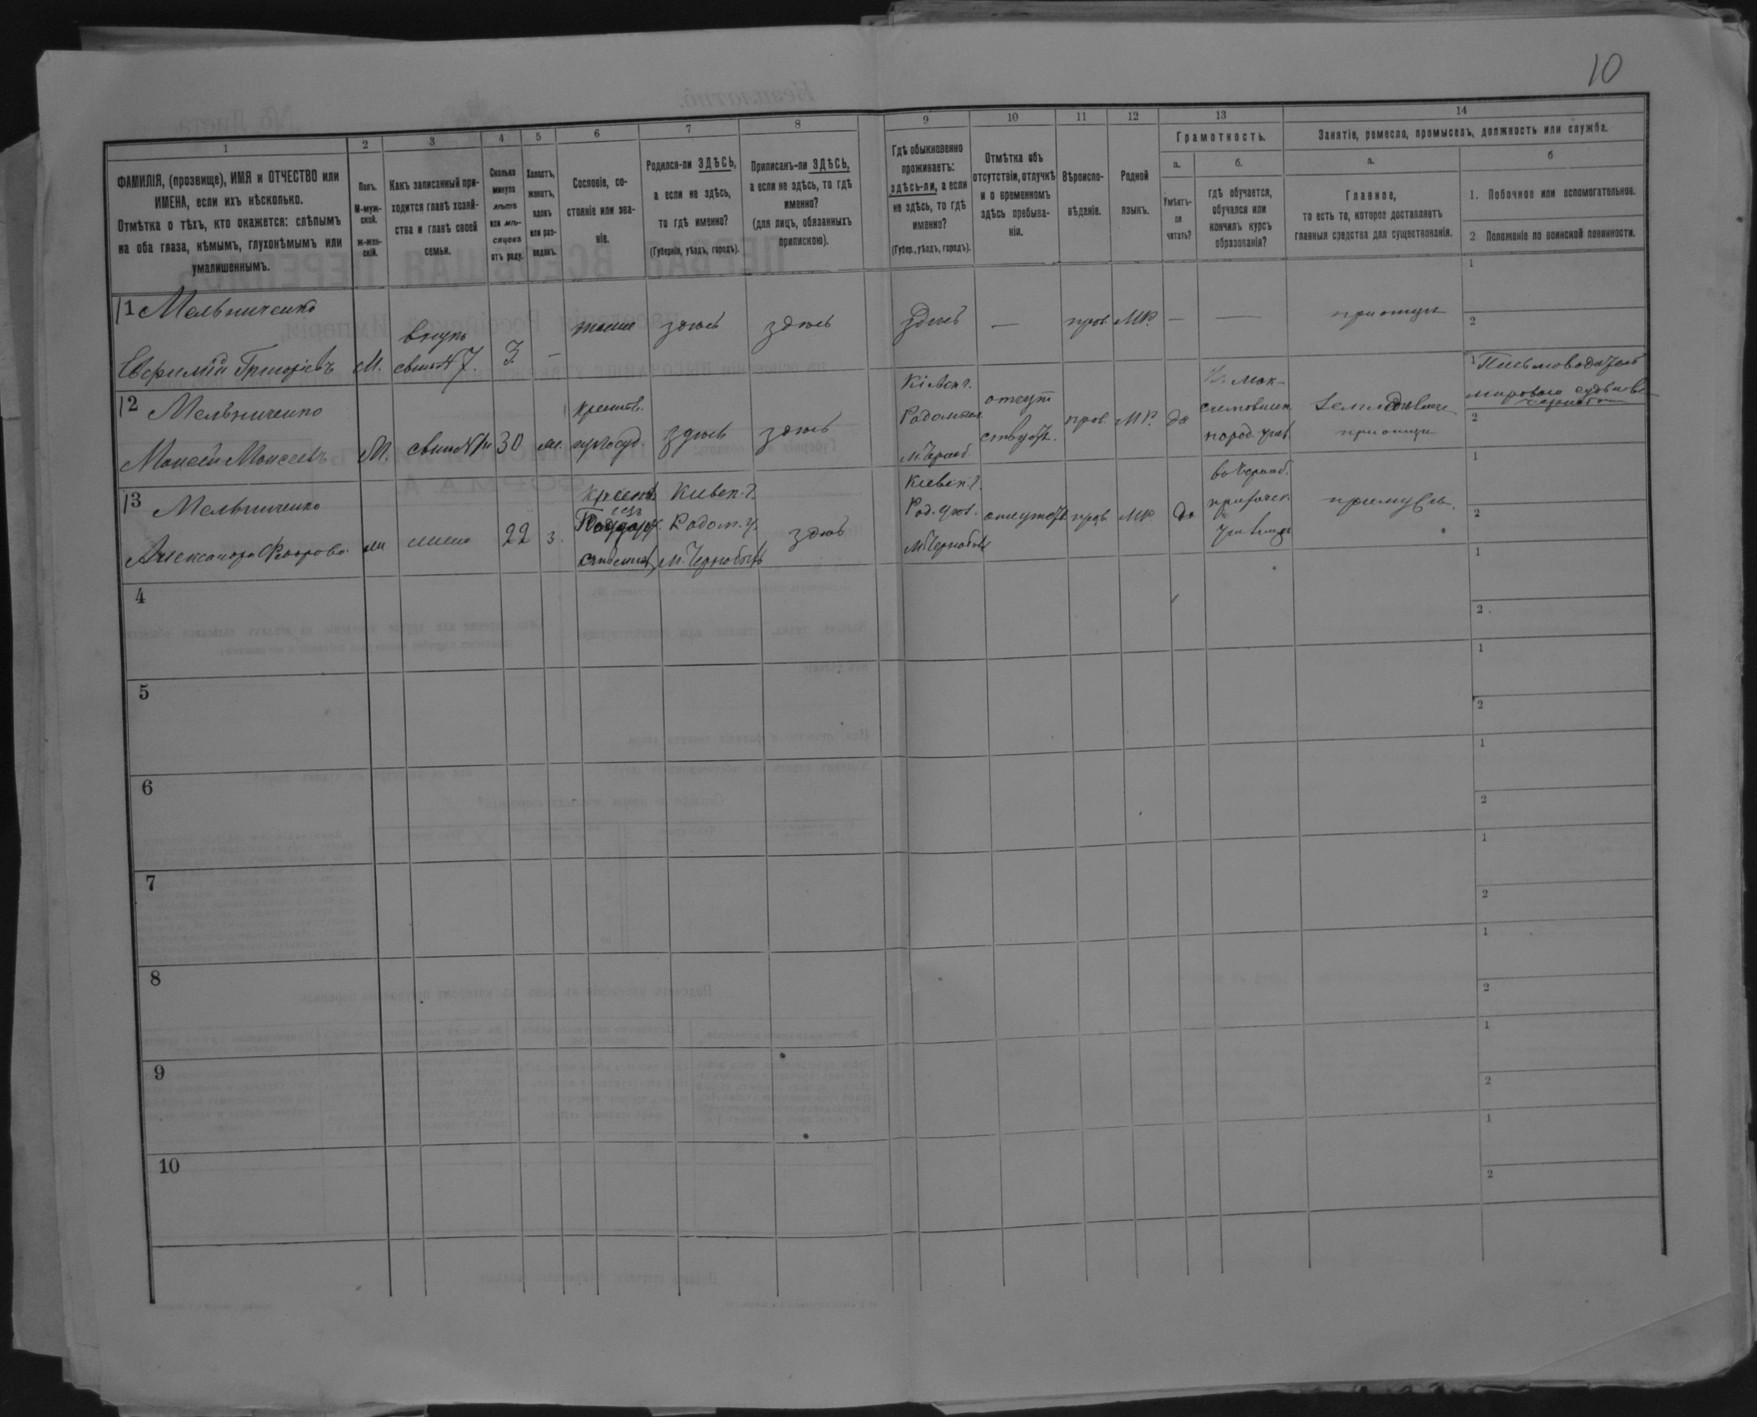 10
1
2
3
4
5
6
7
8
9
10
11
12
13
14
ФАМИЛІЯ, (прозвище), ИМЯ и ОТЧЕСТВО или
ИМЕНА, если ихъ нѣсколько.
Отмѣтка о тѣхъ, кто окажется: слѣпымъ
на оба глаза, нѣмымъ, глухонѣмымъ или
умалишеннымъ.
Полъ.
М-муж-
ской.
Ж-жен-
скій.
Какъ записанный при-
ходится главѣ хозяй-
ства и главѣ своей
семьи.
Сколько
минуло
лѣтъ
или мѣ-
сяцевъ
отъ роду.
Холостъ,
женатъ,
вдовъ
или раз-
веденъ.
Сословіе, со-
стояніе или зва-
ніе.
Родился-ли ЗДѢСЬ,
а если не здѣсь,
то гдѣ именно?
(Губернія, уѣздъ, городъ).
Приписанъ-ли ЗДѢСЬ,
а если не здѣсь, то гдѣ
именно?
(для лицъ, обязанныхъ
припискою).
Гдѣ обыкновенно
проживаетъ:
здѣсь-ли, а если
не здѣсь, то гдѣ
именно?
(Губер., уѣздъ, городъ).
Отмѣтка объ
отсутствіи, отлучкѣ
и о временномъ
здѣсь пребыва-
ніи.
Вѣроиспо-
вѣданіе.
Родной
языкъ.
Грамотность.
а.
Умѣетъ-
ли
читать?
б.
Гдѣ обучается,
обучался или
кончилъ курсъ
образованія?
Занятіе, ремесло, промыселъ, должность или служба.
а.
Главное,
то есть то, которое доставляетъ
главныя средства для существованія.
б
1. Побочное или вспомогательное.
2 Положеніе по воинской повинности.
11 Мельниченко
Евфимій Григоріевъ
М.
внукъ
3
—
тоже
здѣсь
здѣсь
здѣсь
—
прав.
МР.
—
—
при отцѣ
1
2
12 Мельниченко
Моисей Моисеевъ
М.
30
здѣсь
здѣсь
Кіевск. г.
отсут
ствуетъ
прав.
МР.
да
народ. учил.
Земледѣліе
при отцѣ
1 Письмоводитель
мирового
2
13 Мельниченко
Александра Федорова
22
з.
Кіевск. г.
Радом. у.
м. Чернобыль
здѣсь
Кіевск. г.
Рад. уѣз.
М. Чернобыль
прав.
МР.
да
въ Черноб.
приходск.
при мужѣ.
1
2
4
1
2
5
1
2
6
1
2
7
1
2
8
1
2
9
1
2
10
1
2